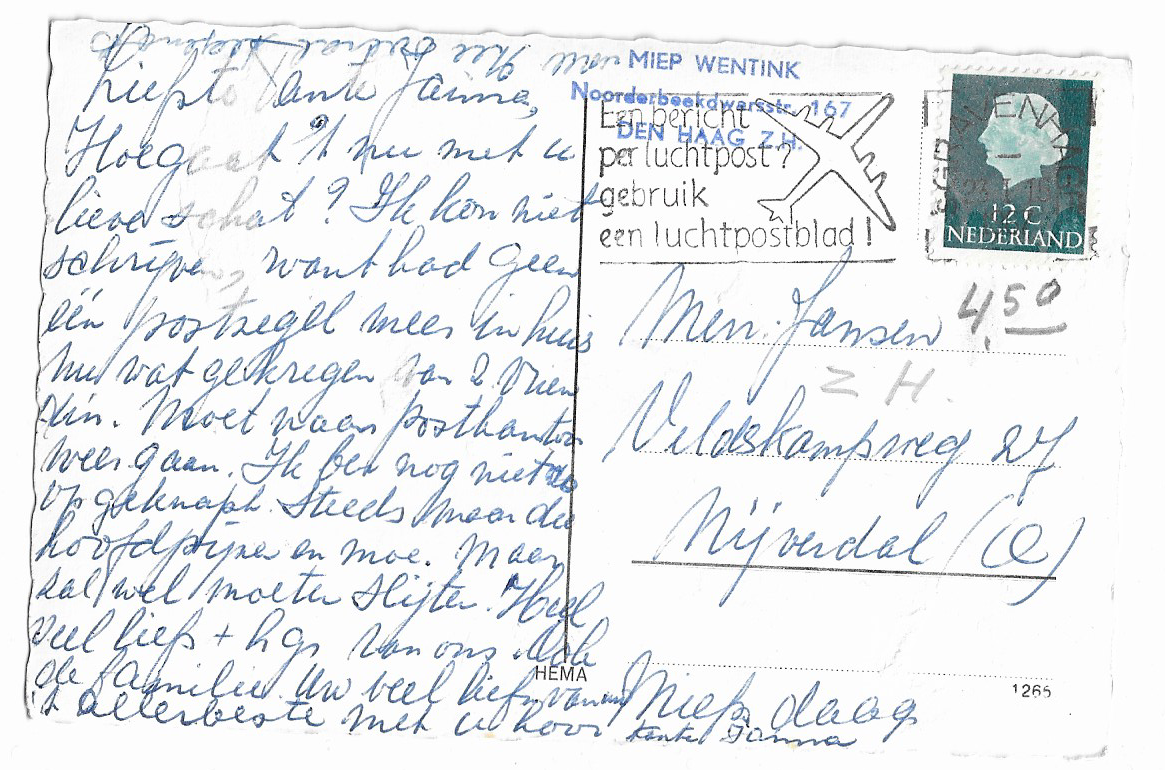 Liefste tante Janna,
Hoegaat 't nu met u
lieve schat? Ik kon niet
schrijven, want had geen
één postzegel meer in huis
nu wat gekregen van 2 vrien
din. Moet naar postkantoor
weer gaan. Ik ben nog niet
opgeknapt. Steeds maar die
hoofdpijn en moe. Maar
zal wel moeten slijten. Heel
veel liefs + hgr van ons. Ook
de familie. Uw veel liefs van uw
't allerbeste met u hoor
Miep daag
tante Janna
MIEP WENTINK
Noorderbeekdwarsstr. 167
DEN HAAG Z.H.
Een bericht
per luchtpost?
gebruik
een luchtpostblad!
'S-GRAVENHAGE
12 C
NEDERLAND
4.50
Mevr. Jansen
Z H.
Veldskampweg 27
Nijverdal (O)
HEMA
1265